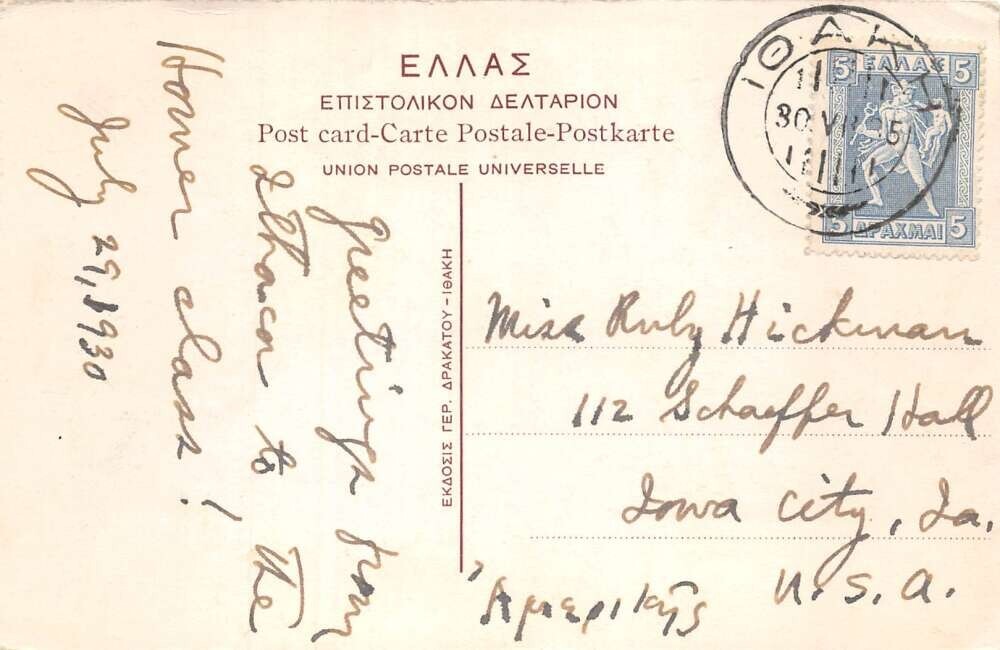 ΕΛΛΑΣ
ΕΠΙΣΤΟΛΙΚΟΝ ΔΕΛΤΑΡΙΟΝ
Post card-Carte Postale-Postkarte
UNION POSTALE UNIVERSELLE
ΙΘΑΚΗ
30 VII
5 ΕΛΛΑΣ 5
5 ΔΡΑΧΜΑΙ 5
Greetings from
Ithaca to the
Homer class!
July 29, 1930
ΕΚΔΟΣΙΣ ΓΕΡ. ΔΡΑΚΑΤΟΥ - ΙΘΑΚΗ
Miss Ruby Hickman
112 Schaeffer Hall
Iowa City, Ia.
U.S.A.
Ἀμερικῆς